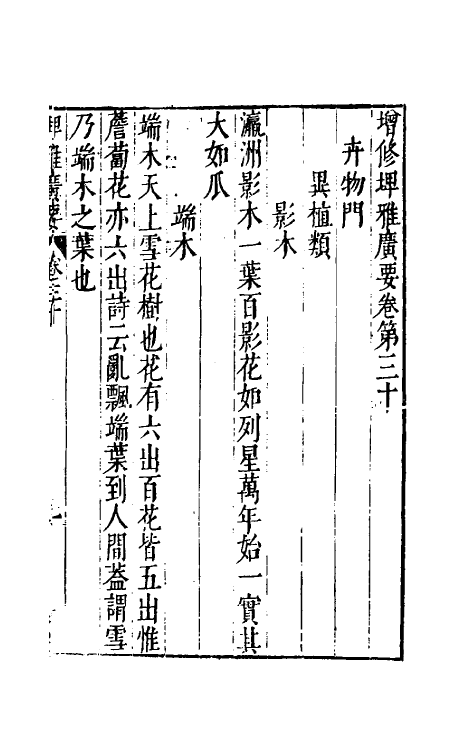 增修埤雅廣要卷第三十
卉物門
異植類
影木
瀛洲影木一葉百影花如列星萬年始一實其
大如瓜
端木
端木天上雪花樹也花有六出百花皆五出惟
薝蔔花亦六出詩云亂飄端葉到人間葢謂雪
乃端木之葉也
埤雅廣要 卷三十 一